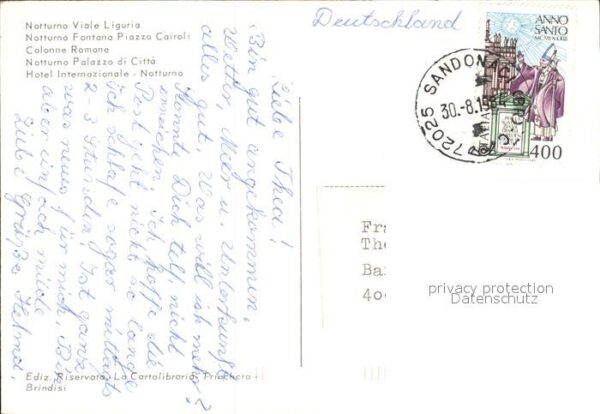 Notturno Viale Liguria
Notturno Fontana Piazza Cairoli
Colonne Romane
Notturno Palazzo di Città
Hotel Internazionale - Notturno
Deutschland
ANNO
SANTO
400
72025 SANDONACI
30.-8.19
Liebe Thea!
Bin gut angekommen,
Wetter, Meer u. Unterkunft
alles gut. Was will ich mehr?
Konnte Dich tel. nicht
erreichen. Ich hoffe die
Post geht nicht so lange
ich schlafe sogar mittags
2-3 Stunden, ist ganz
was neues für mich. Bin
aber einfach müde
Liebe Grüße Helma.
Fra
The
Ba
400
privacy protection
Datenschutz
Ediz. Riservata - La Cartolibraria
Brindisi